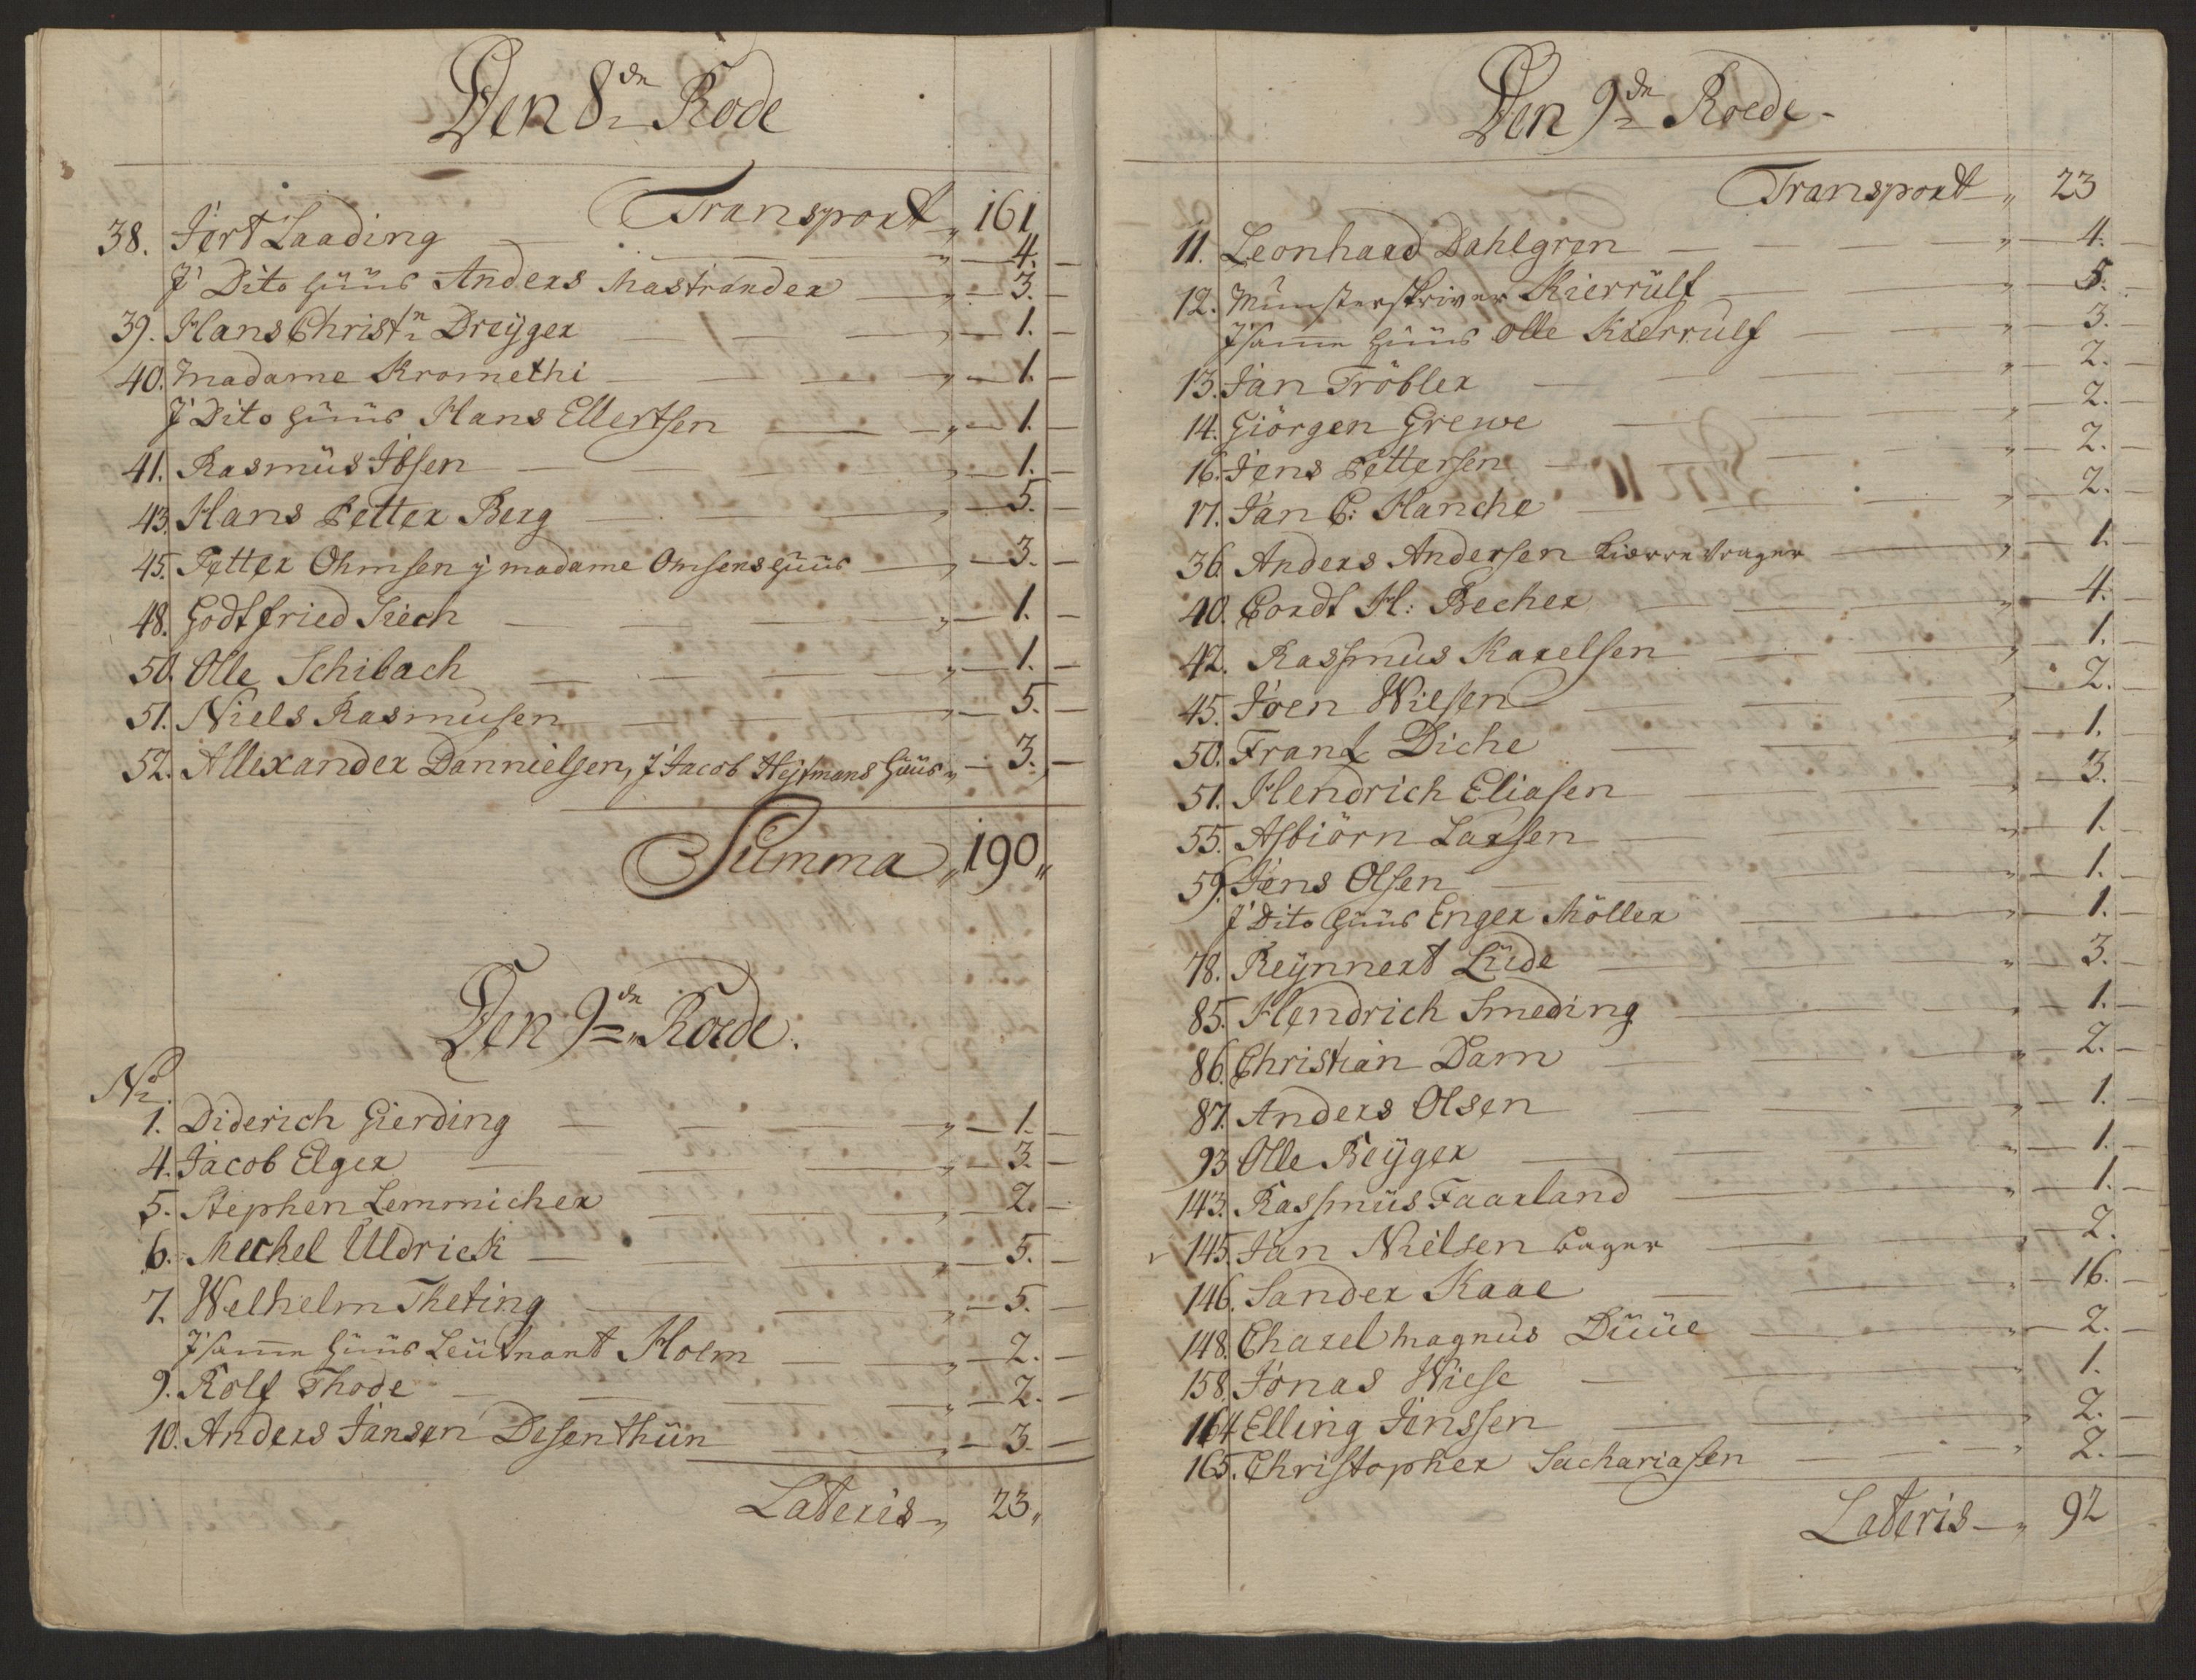 Den 8de Rode
Transport „ 161
38. Jert Laading „ 4.
J Dito Huus Anders Mastrander „ 3.
39. Hans Christn Dreyger „ 1.
40. Madame Kromethi „ 1.
J Dito Huus Hans Ellertsen „ 1.
41. Rasmus Ibsen „ 1.
43. Hans Petter Berg „ 5.
45. Petter Ohmsen j madame Omsens Huus „ 3.
48. Godtfried Siech „ 1.
50. Olle Schibach „ 1.
51. Niels Rasmusen „ 5.
52. Allexander Dannielsen, J Jacob Heysmans Huus „ 3.
Summa „ 190 „
Den 9de Roede.
No
1. Diderich Gierding „ 1.
4. Jacob Elger „ 3.
5. Stephen Lemmicher „ 2.
6. Mechel Uldrick „ 5.
7. Welhelm Theting „ 5.
J samme Huus Leutnant Holm „ 2.
9. Rolf Thode „ 2.
10. Anders Jansen Desenthun „ 3.
Lateris „ 23 „
Den 9de Roede
Transport „ 23
11. Leonhard Dahlgren „ 4.
12. Munsterskriver Kierrulf „ 5.
J samme Huus Olle Kierrulf „ 3.
13. Jan Tröbler „ 2.
14. Giörgen Grewe „ 2.
16. Jens Pettersen „ 2.
17. Jan C: Hanche „ 2.
36. Anders Andersen Biørredrager „ 1.
40. Cordt H: Becher „ 4.
42. Rasmus Karelsen „ 1.
45. Joen Nielsen „ 2.
50. Frans Diche „ 1.
51. Hendrich Eliasen „ 3.
55. Asbiörn Larsen „ 1.
59. Jens Olsen „ 1.
J Dito Huus Enger Möller „ 1.
78. Reynnert Lude „ 3.
85. Hendrich Smeding „ 1.
86. Christian Dam „ 2.
87. Anders Olsen „ 1.
93. Olle Reyger „ 1.
143. Rasmus Faarland „ 1.
145. Jan Nielsen Bager „ 2.
146. Sander Kaae „ 16.
148. Charel Magnus Duue „ 2.
158. Jonas Wiese „ 1.
164. Elling Jenssen „ 2.
165. Christopher Sachariasen „ 2.
Lateris „ 92